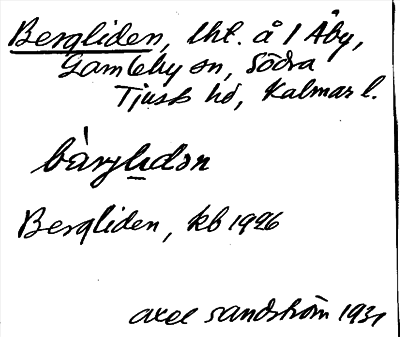 Bergliden, lht. å 1 Åby,
Gamleby sn, Södra
Tjusts hd, Kalmar l.
bàrylıdən
Bergliden, kb 1926
Axel Sandström 1931